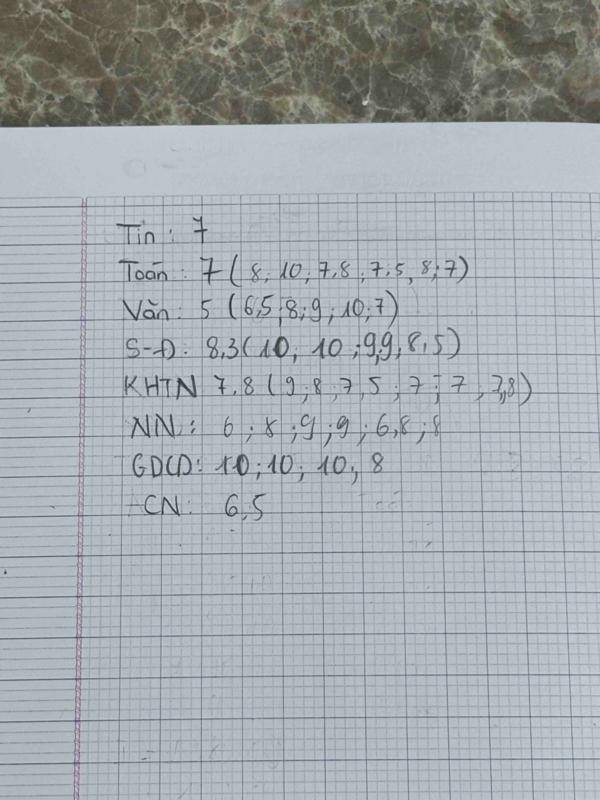 Tin: 7
Toán: 7 (8; 10; 7,8; 7,5, 8; 7)
Văn: 5 (6,5; 8; 9; 10; 7)
S-Đ: 8,3 (10; 10; 9,9, 8,5)
KHTN 7,8 (9; 8; 7,5; 7; 7, 7,8)
NN: 6; 8; 9; 9; 6,8; 8
GDCD: 10; 10; 10, 8
CN: 6,5